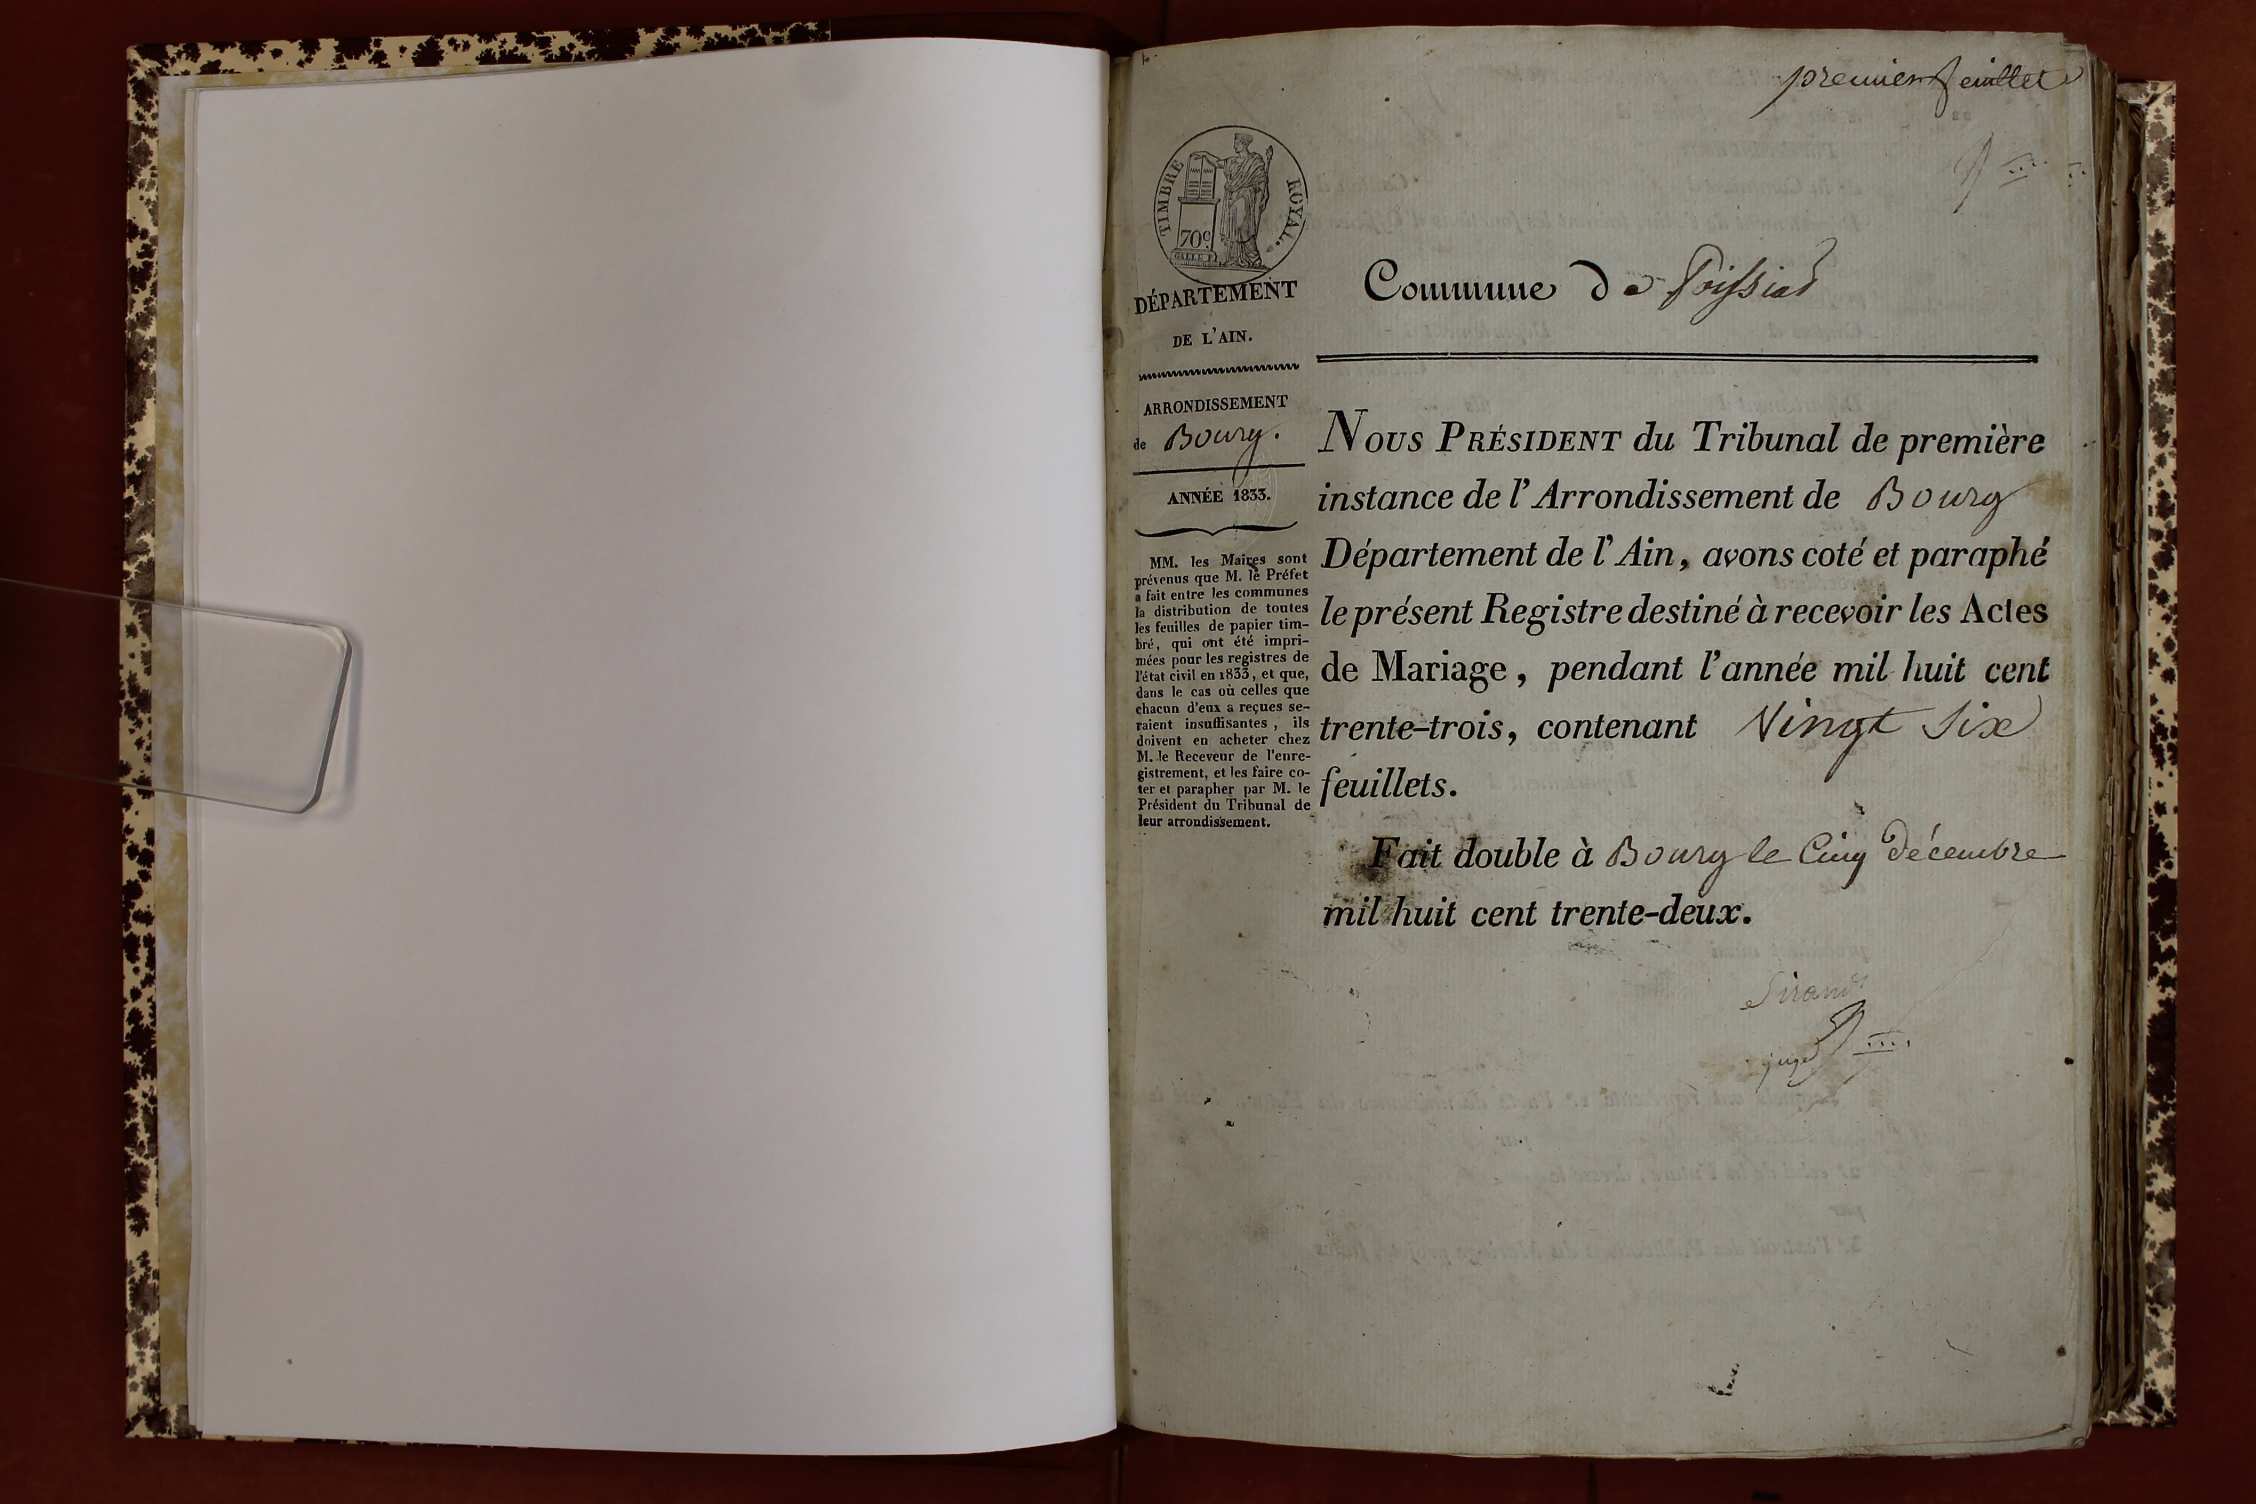 premier feuillet
TIMBRE ROYAL.
70c.
DÉPARTEMENT
DE L'AIN.
ARRONDISSEMENT
de Bourg.
ANNÉE 1833.
MM. les Maires sont
prévenus que M. le Préfet
a fait entre les communes
la distribution de toutes
les feuilles de papier tim-
bré, qui ont été impri-
mées pour les registres de
l'état civil en 1833, et que,
dans le cas où celles que
chacun d'eux a reçues se-
raient insuffisantes, ils
doivent en acheter chez
M. le Receveur de l'enre-
gistrement, et les faire co-
ter et parapher par M. le
Président du Tribunal de
leur arrondissement.
Commune de Poissiat
NOUS PRÉSIDENT du Tribunal de première
instance de l'Arrondissement de Bourg
Département de l'Ain, avons coté et paraphé
le présent Registre destiné à recevoir les Actes
de Mariage, pendant l'année mil huit cent
trente-trois, contenant Vingt Six
feuillets.
Fait double à Bourg le Cinq décembre
mil huit cent trente-deux.
Sirand
juge